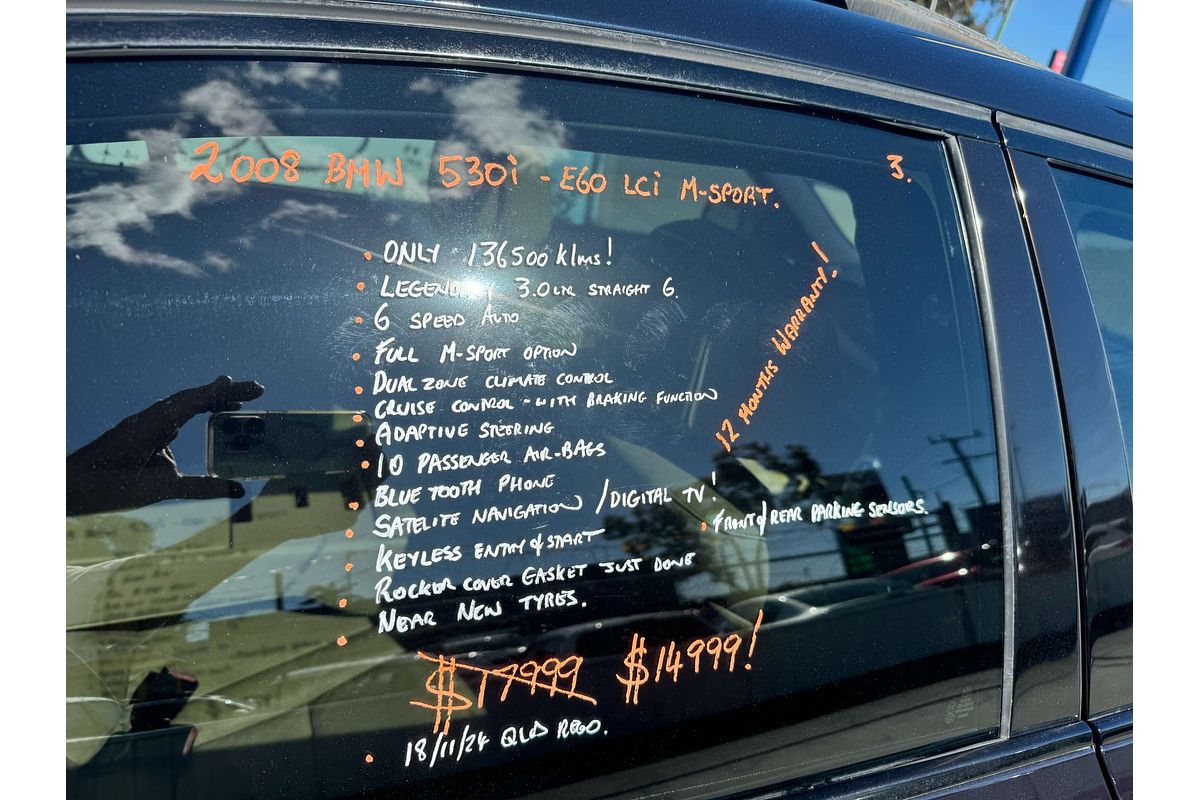 2008 BMW 530i - E60 LCi M-SPORT.
3.
• ONLY 136500 klms!
• LEGENDARY 3.0LTR STRAIGHT 6.
• 6 SPEED AUTO
• FULL M-SPORT OPTION
• DUAL ZONE CLIMATE CONTROL
• CRUISE CONTROL - WITH BRAKING FUNCTION
• ADAPTIVE STEERING
• 10 PASSENGER AIR-BAGS
• BLUE TOOTH PHONE
• SATELITE NAVIGATION / DIGITAL TV!
• KEYLESS ENTRY & START
• ROCKER COVER GASKET JUST DONE
• NEAR NEW TYRES.
12 MONTHS WARRANTY!
• FRONT & REAR PARKING SENSORS.
$17999 $14999!
• 18/11/24 QLD REGO.